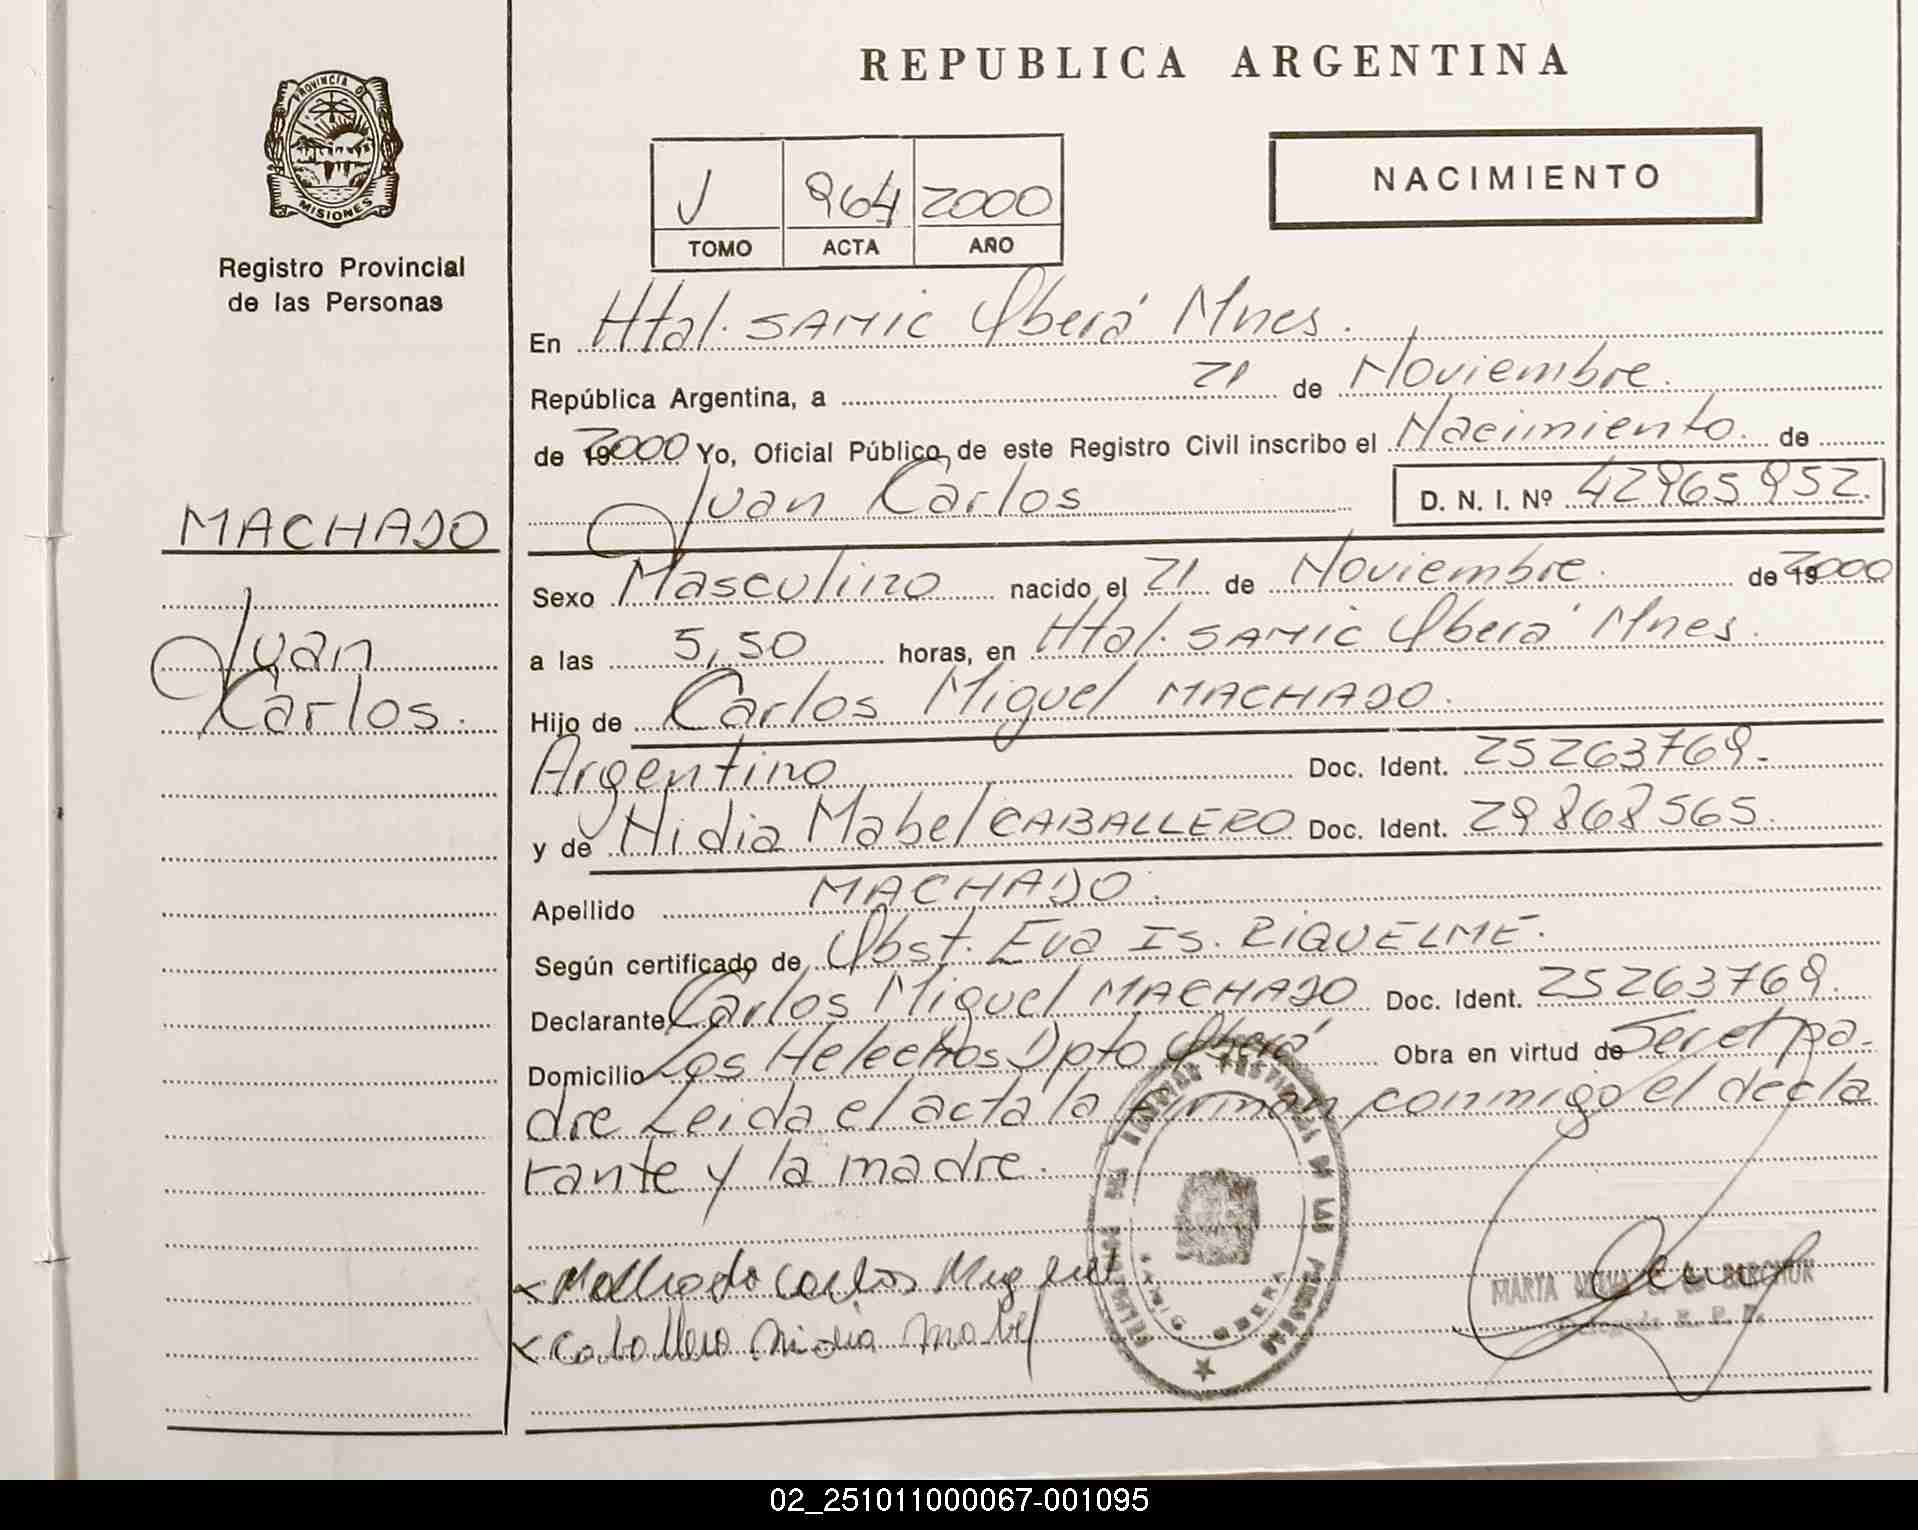 REPUBLICA ARGENTINA
PROVINCIA DE
MISIONES
Registro Provincial
de las Personas
J 964 2000
TOMO ACTA AÑO
NACIMIENTO
En Htal. SAMIC Oberá Mnes.
República Argentina, a 21 de Noviembre.
de 192000 Yo, Oficial Público, de este Registro Civil inscribo el Nacimiento de
Juan Carlos D. N. I. Nº
MACHADO
Juan
Carlos.
Sexo Masculino nacido el 21 de Noviembre. de 192000
a las 5,50 horas, en Htal. SAMIC Oberá Mnes.
Hijo de Carlos Miguel MACHADO.
Argentino Doc. Ident.
y de Nidia Mabel CABALLERO Doc. Ident.
Apellido MACHADO.
Según certificado de Obst. Eva Is. RIQUELME.
Declarante Carlos Miguel MACHADO Doc. Ident.
Domicilio Los Helechos Dpto Oberá Obra en virtud de Ser el pa-
dre Leida el acta la firman conmigo el decla
rante y la madre.
Machado Carlos Miguel
Caballero Nidia Mabel
MARYA
02_251011000067-001095